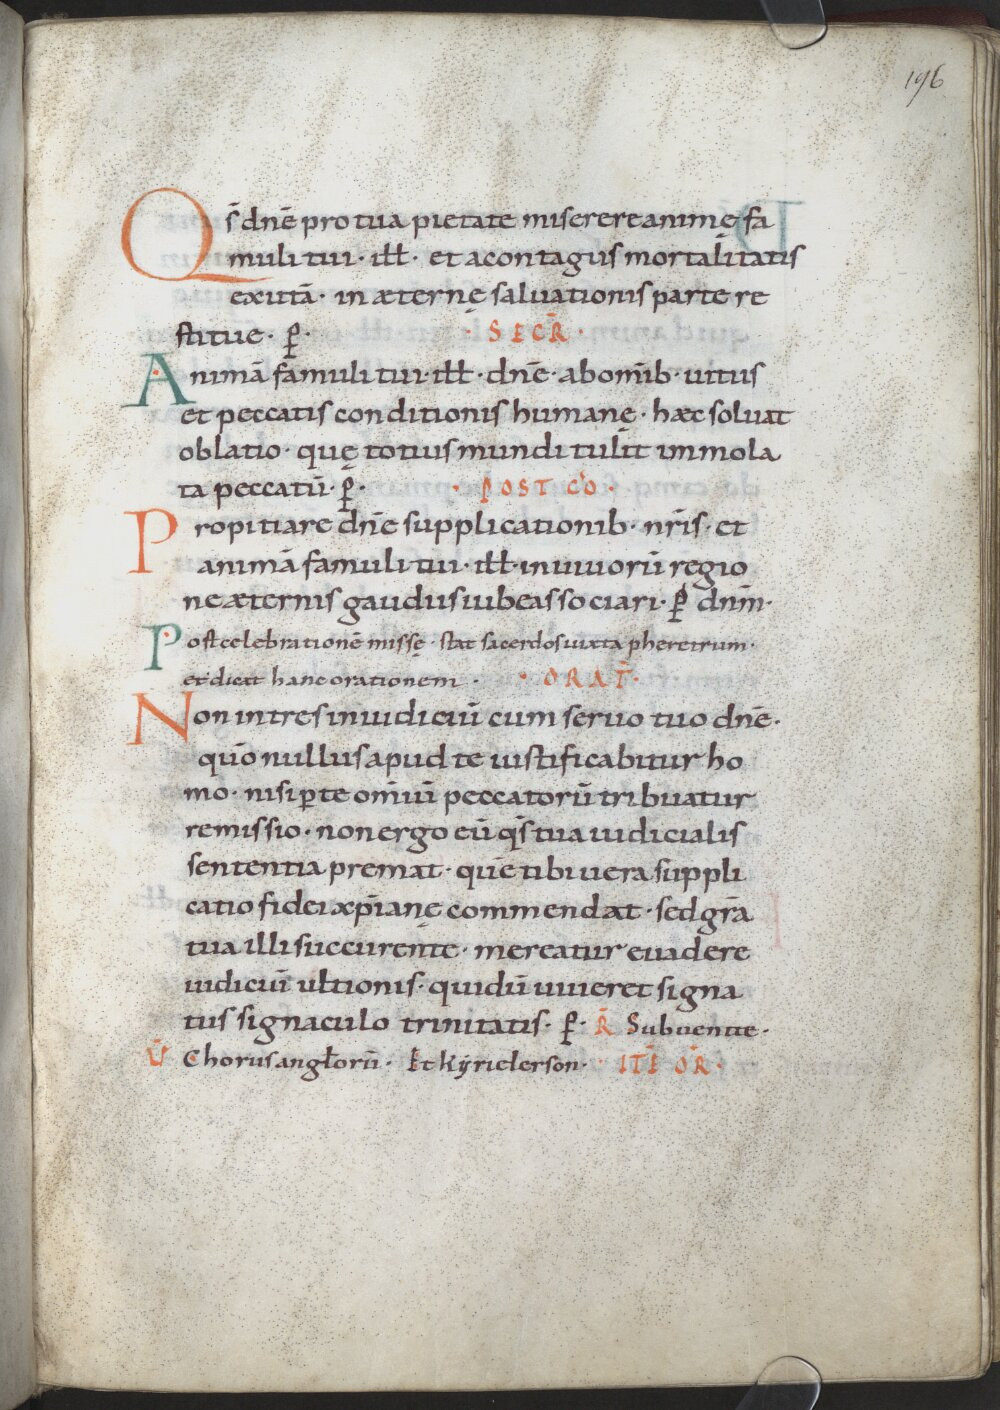 196
Qs̄ dnē pro tua pietate miserere animę fa
muli tui · ill̄ · et a contagiis mortalitatis
exutā · in æternę saluationis parte re
stitue · p̄ · SECR̄ ·
Animā famuli tui · ill̄ · dnē · ab om̄ib · uitiis
et peccatis conditionis humanę · hæc soluat
oblatio · quę totius mundi tulit immola
ta peccatū · p̄ · POST CŌ ·
Propitiare dnē supplicationib · nr̄is · et
animā famuli tui · ill̄ · in uiuorū regio
ne æternis gaudiis iubeas sociari · p̄ dnm̄ ·
Post celebrationē missę · stat sacerdos iuxta pheretrum ·
et dicat hanc orationem · ORAT̄ ·
Non intres in iudiciū cum seruo tuo dnē ·
quō nullus apud te iustificabitur ho
mo · nisi p̱ te om̄iū peccatorū tribuatur
remissio · non ergo eū qs̄ tua iudicialis
sententia premat · quē tibi uera suppli
catio fidei xp̄ianę commendat · sed gr̄a
tua illi succurente · mereatur euadere
iudiciū ultionis · qui dū uiueret signa
tus signaculo trinitatis · p̄ · R̄ Subuenite ·
V̄ Chorus angl̄orū · Et Kyrieleison · ITĒ OR̄ ·